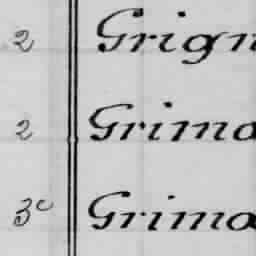 2 Grign
2 Grima
3c Grima